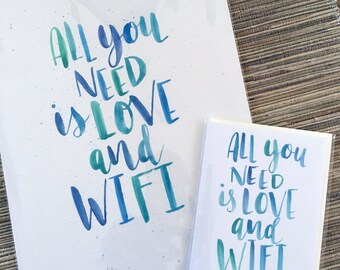 ALL you
NEED
is LOVE
and
WIFI
ALL you
NEED
is LOVE
and
WIFI